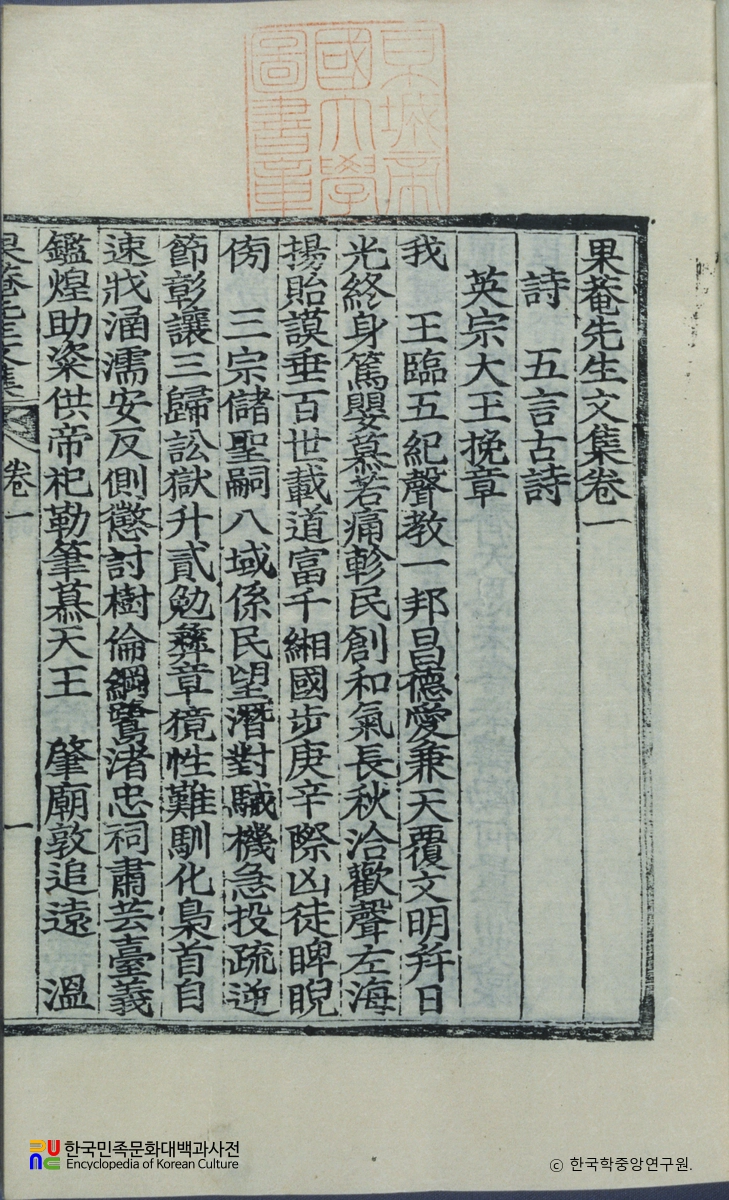 果菴先生文集卷一
詩 五言古詩
英宗大王挽章
我 王臨五紀聲教一邦昌德愛兼天覆文明幷日
光終身篤嬰慕若痛軫民創和氣長秋洽歡聲左海
揚貽謨垂百世載道富千緗國步庚辛際凶徒睥睨
傍 三宗儲聖嗣八域係民望潛對駴機急投疏逆
節彰讓三歸訟獄升貳勉彝章獍性難馴化梟首自
速戕涵濡安反側懲討樹倫綱鷺渚忠祠肅芸臺義
鑑煌助粢供帝祀勒筆慕天王 肇廟敦追遠 溫
果菴先生文集
卷一
一
京城帝
國大學
圖書章
한국민족문화대백과사전
Encyclopedia of Korean Culture
© 한국학중앙연구원.